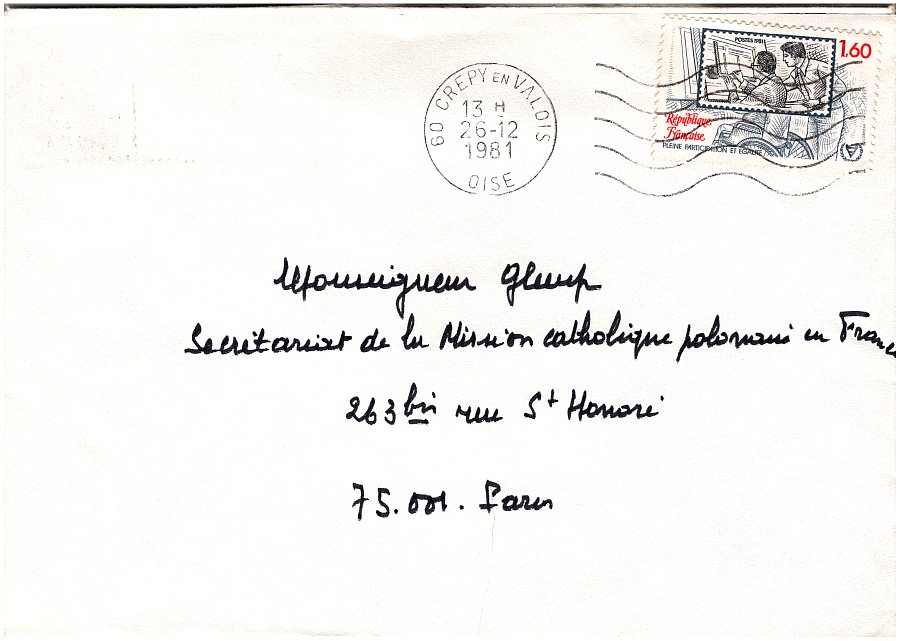 POSTES 1981
1.60
République
Française
PLEINE PARTICIPATION ET EGALITE
60 CREPY EN VALOIS
13 H
26-12
1981
OISE
Monseigneur Glemp
Secrétariat de la Mission catholique polonaise en France
263 bis rue St Honoré
75.001. Paris